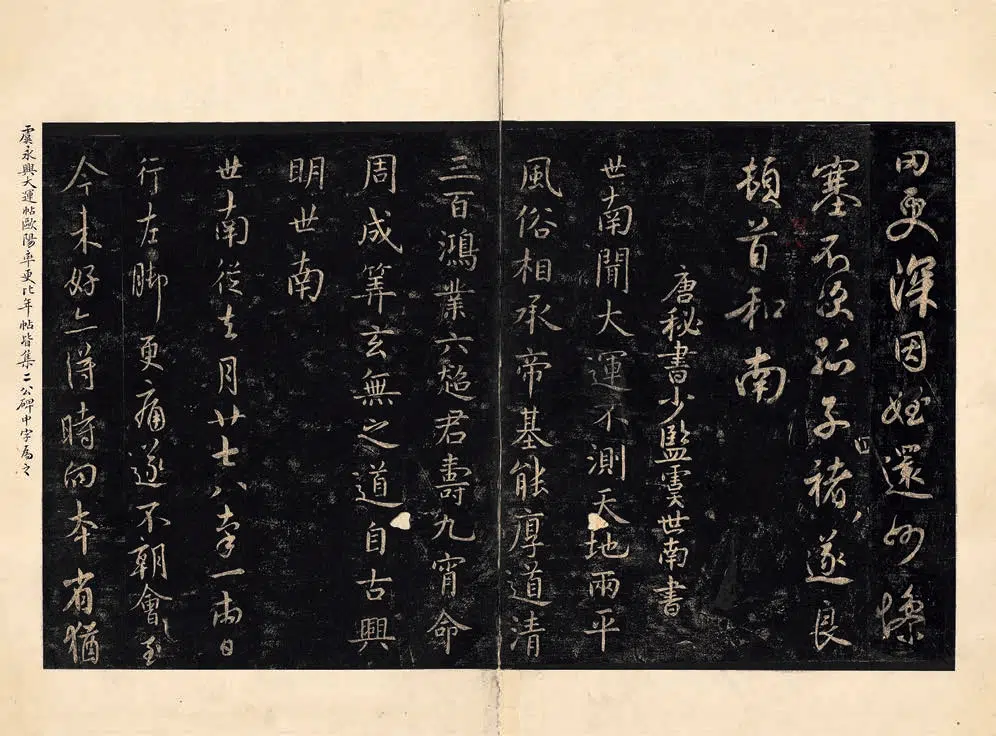 罔更深因姪還州慘
塞不次孤子褚遂良
四
頓首和南
唐秘書少監虞世南書
世南聞大運不測天地兩平
風俗相承帝基能厚道清
三百鴻業六超君壽九霄命
周成筭玄無之道自古興
明世南
世南從去月廿七八率一兩日
行左脚更痛遂不朝會至
今未好亦得時向本省猶
虞永興大運帖歐陽率更比年帖皆集二公碑中字為之